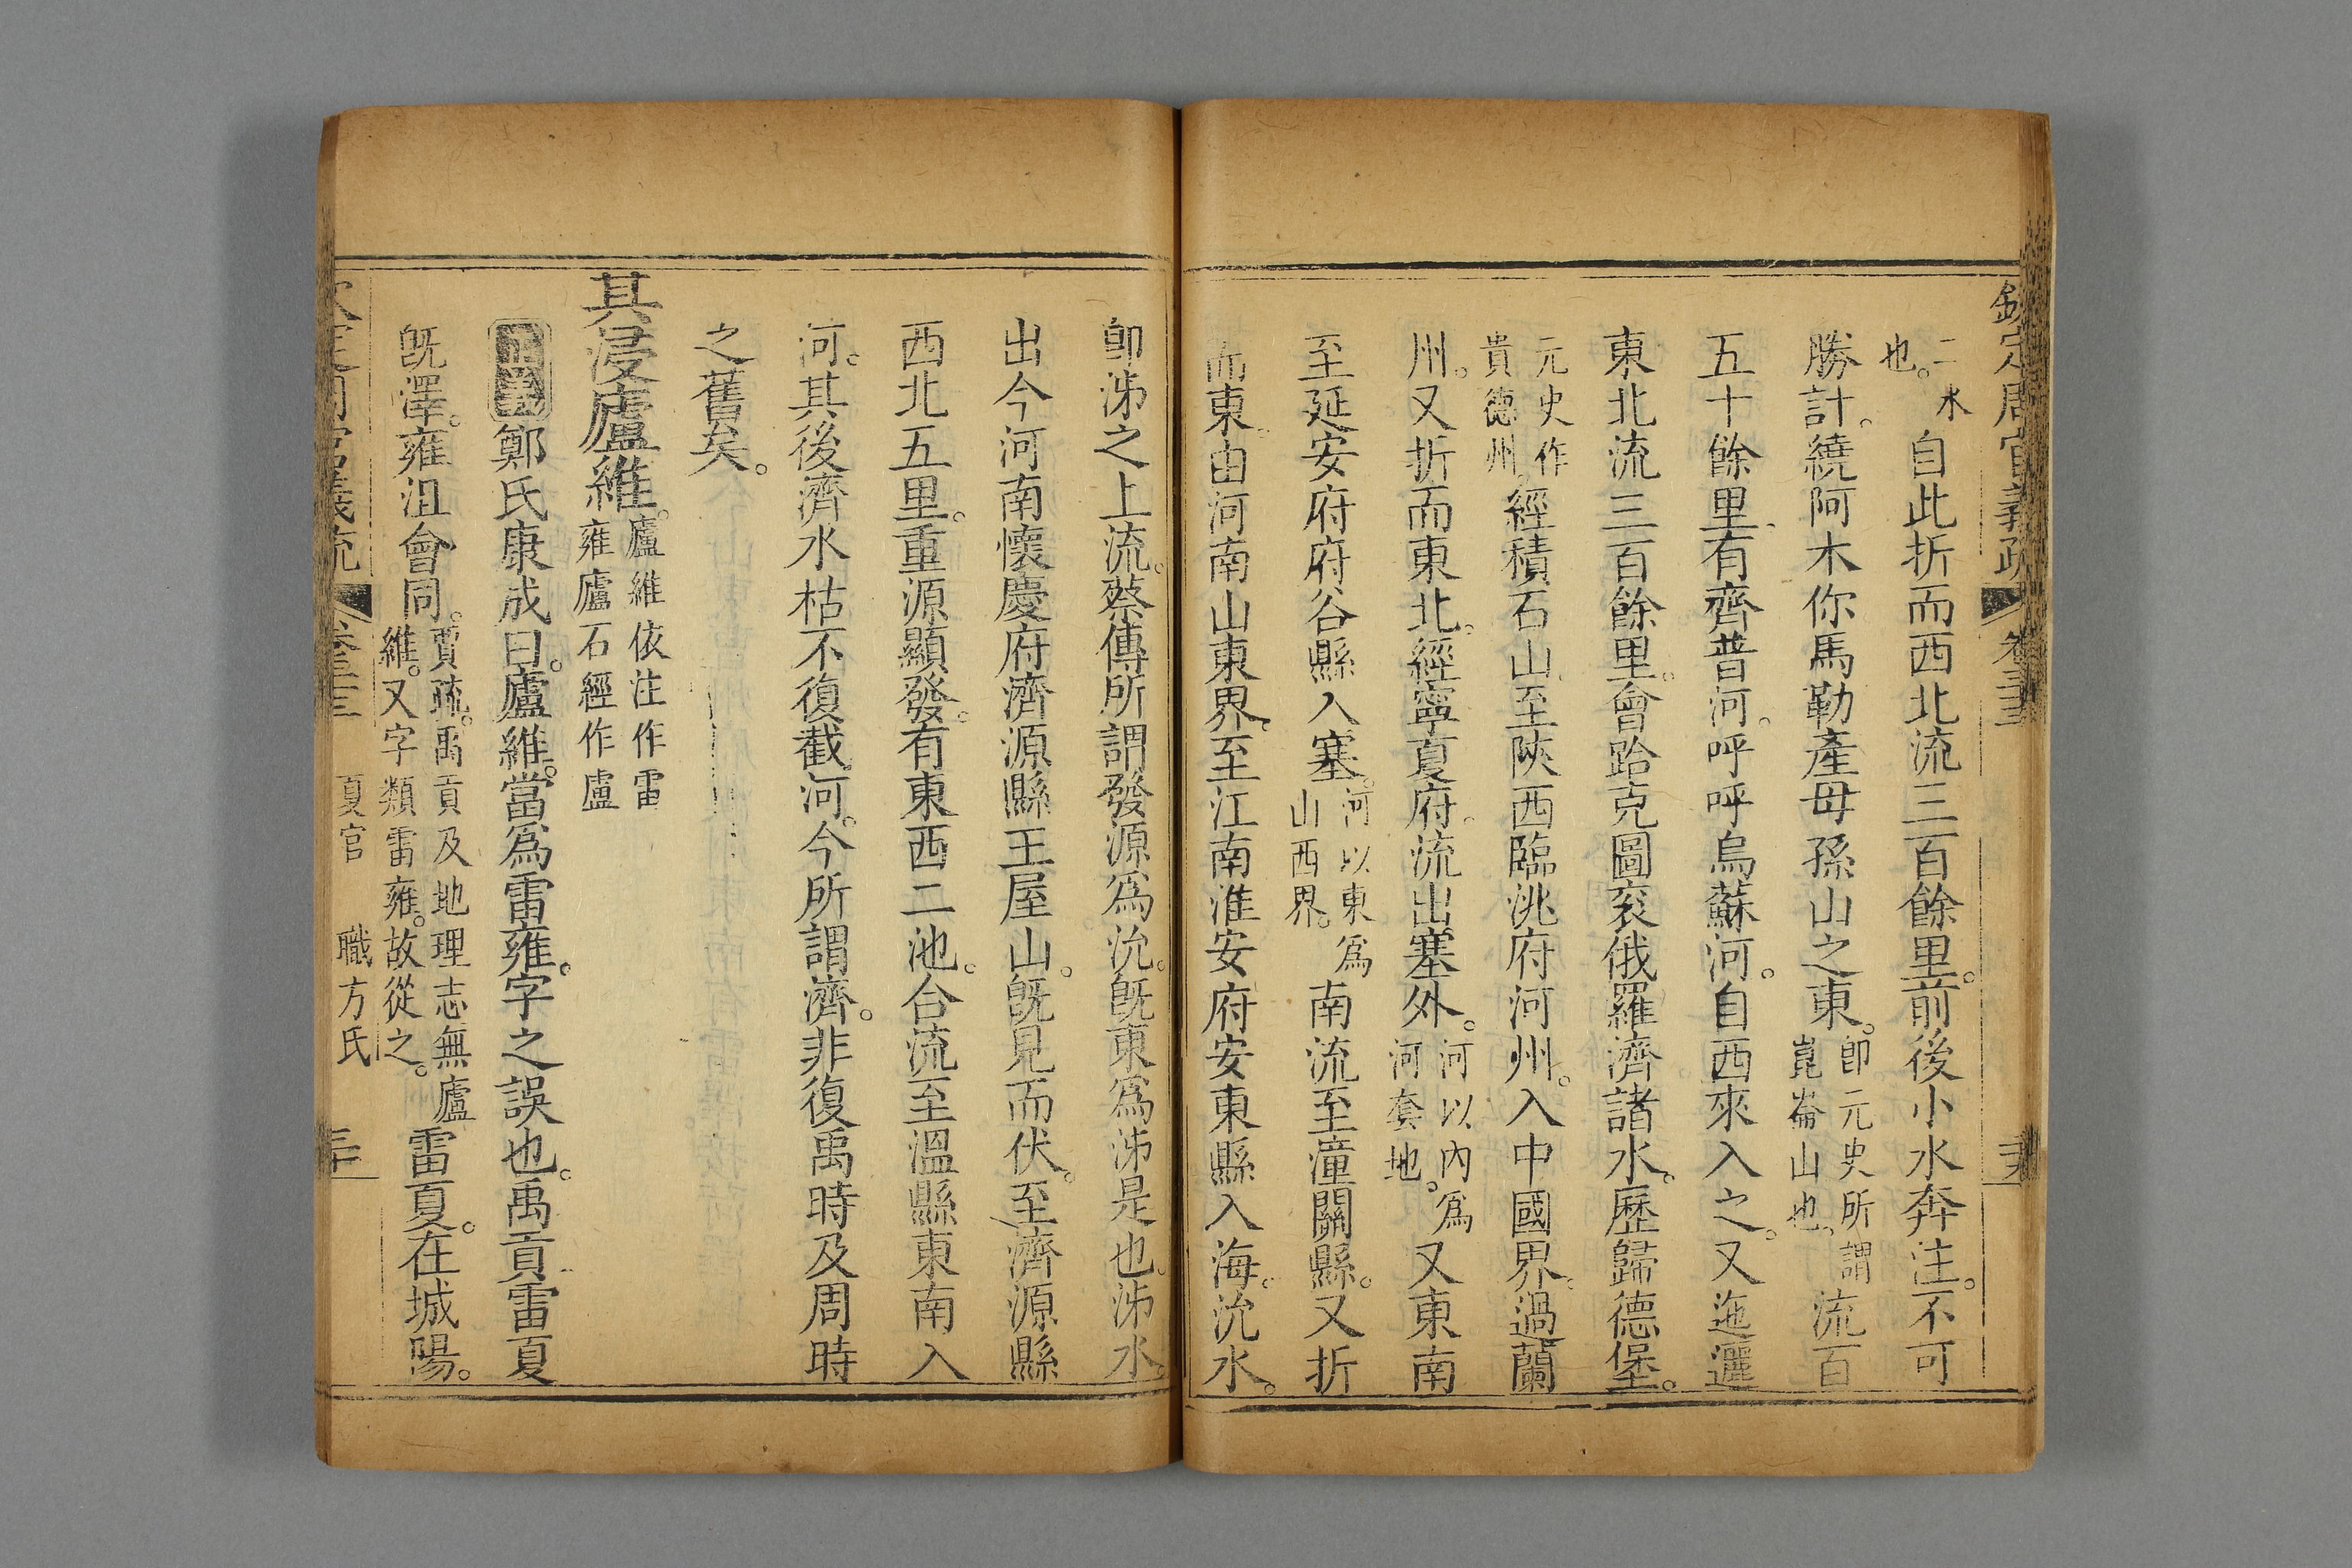 欽定周官義疏 卷三十三
二水也。自此折而西北流三百餘里。前後小水奔注。不可
勝計。繞阿木你馬勒產母孫山之東。卽元史所謂崑崙山也。流百
五十餘里。有齊普河。呼呼烏蘇河。自西來入之。又迤邐
東北流三百餘里。會跆克圖袞俄羅濟諸水。歷歸德堡。
元史作貴德州。經積石山。至陝西臨洮府河州。入中國界。過蘭
州。又折而東北。經寧夏府。流出塞外。河以內爲河套地。又東南
至延安府府谷縣入塞。河以東爲山西界。南流至潼關縣。又折
而東。由河南山東界。至江南淮安府安東縣入海。沇水。
卽泲之上流。蔡傳所謂發源爲沇。旣東爲泲是也。泲水。
出今河南懷慶府濟源縣王屋山。旣見而伏。至濟源縣
西北五里。重源顯發。有東西二池。合流至溫縣東南入
河。其後濟水枯不復截河。今所謂濟。非復禹時及周時
之舊矣。
其浸廬維。廬維依注作雷雍廬石經作盧
正義鄭氏康成曰。廬維。當爲雷雍。字之誤也。禹貢雷夏
旣澤。雍沮會同。賈疏。禹貢及地理志無廬維。又字類雷雍。故從之。雷夏。在城陽。
周官義疏 卷三十三 夏官 職方氏 三十